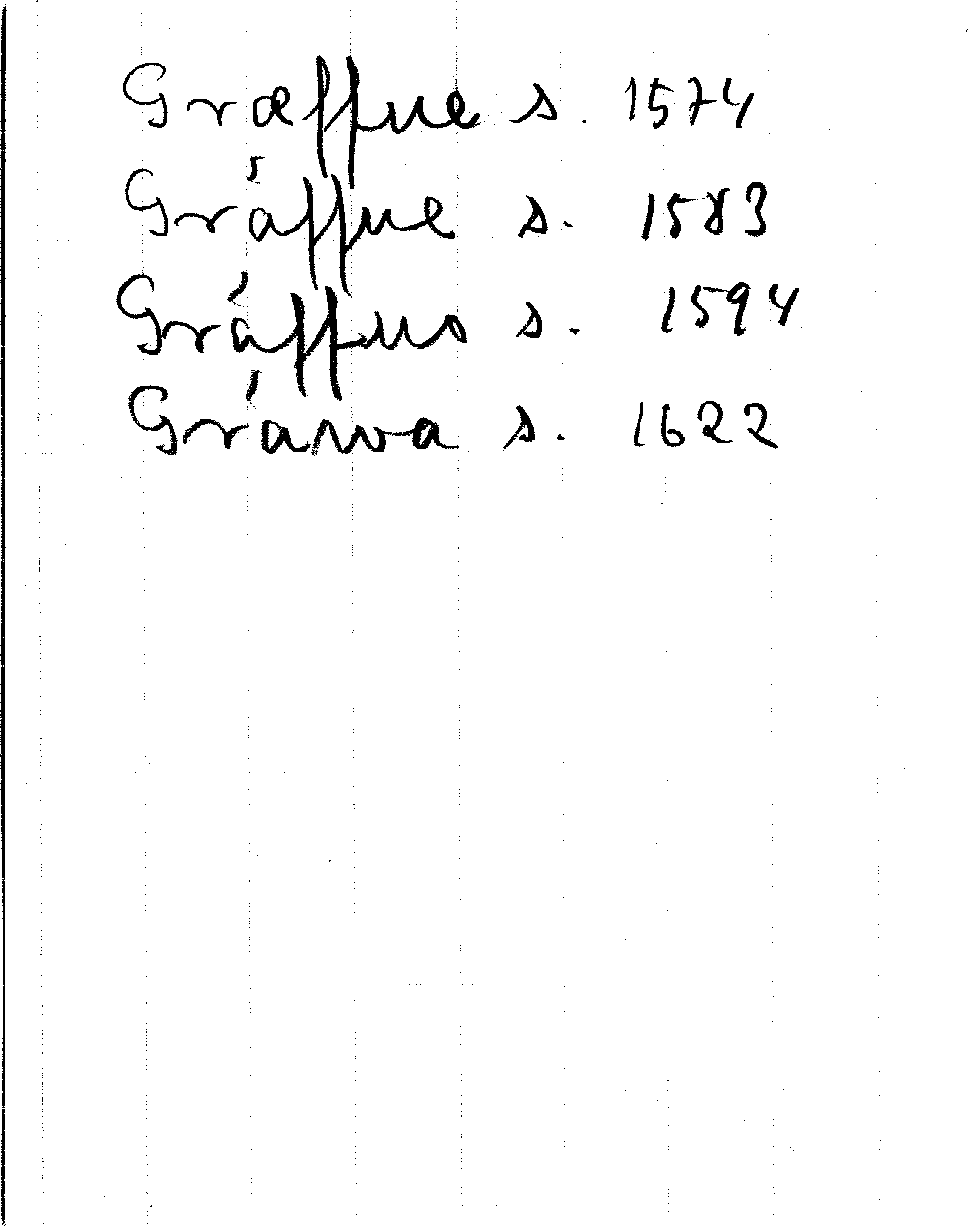 Græffue s. 1574
Gráffue s. 1583
Gráffuo s. 1594
Gráwa s. 1622